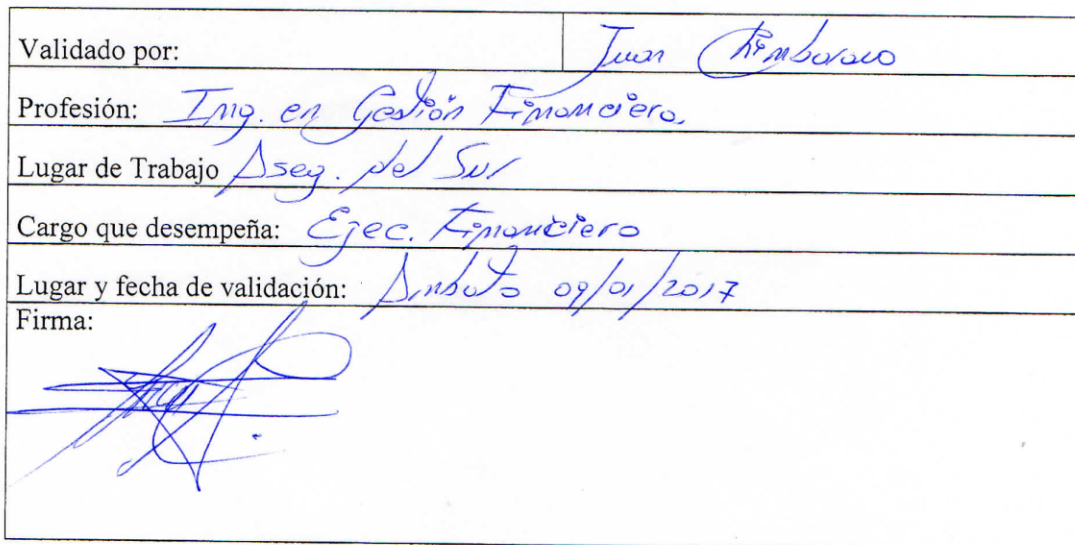 Validado por: Juan Chimborazo
Profesión: Ing. en Gestión Financiera.
Lugar de Trabajo Aseg. del Sur
Cargo que desempeña: Ejec. Financiero
Lugar y fecha de validación: Ambato 09/01/2017
Firma: